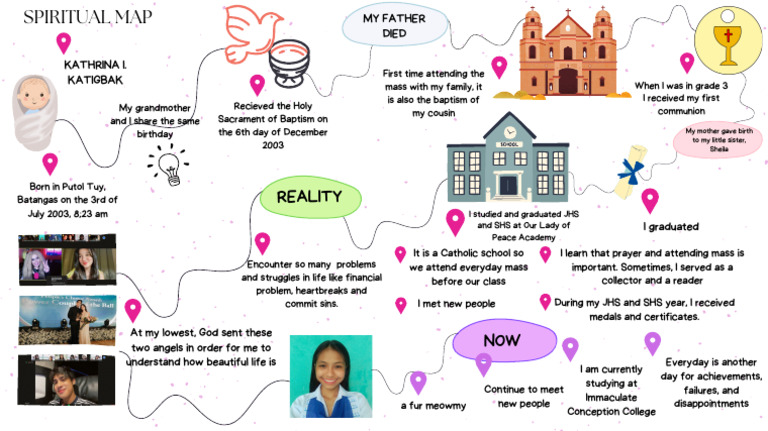 SPIRITUAL MAP
KATHRINA I.
KATIGBAK
My grandmother
and I share the same
birthday
Born in Putol Tuy,
Batangas on the 3rd of
July 2003, 8;23 am
Recieved the Holy
Sacrament of Baptism on
the 6th day of December
2003
MY FATHER
DIED
First time attending the
mass with my family, it
is also the baptism of
my cousin
When I was in grade 3
I received my first
communion
My mother gave birth
to my little sister,
Sheila
I graduated
SCHOOL
I studied and graduated JHS
and SHS at Our Lady of
Peace Academy
It is a Catholic school so
we attend everyday mass
before our class
I met new people
I learn that prayer and attending mass is
important. Sometimes, I served as a
collector and a reader
During my JHS and SHS year, I received
medals and certificates.
REALITY
Encounter so many problems
and struggles in life like financial
problem, heartbreaks and
commit sins.
At my lowest, God sent these
two angels in order for me to
understand how beautiful life is
NOW
a fur meowmy
Continue to meet
new people
I am currently
studying at
Immaculate
Conception College
Everyday is another
day for achievements,
failures, and
disappointments